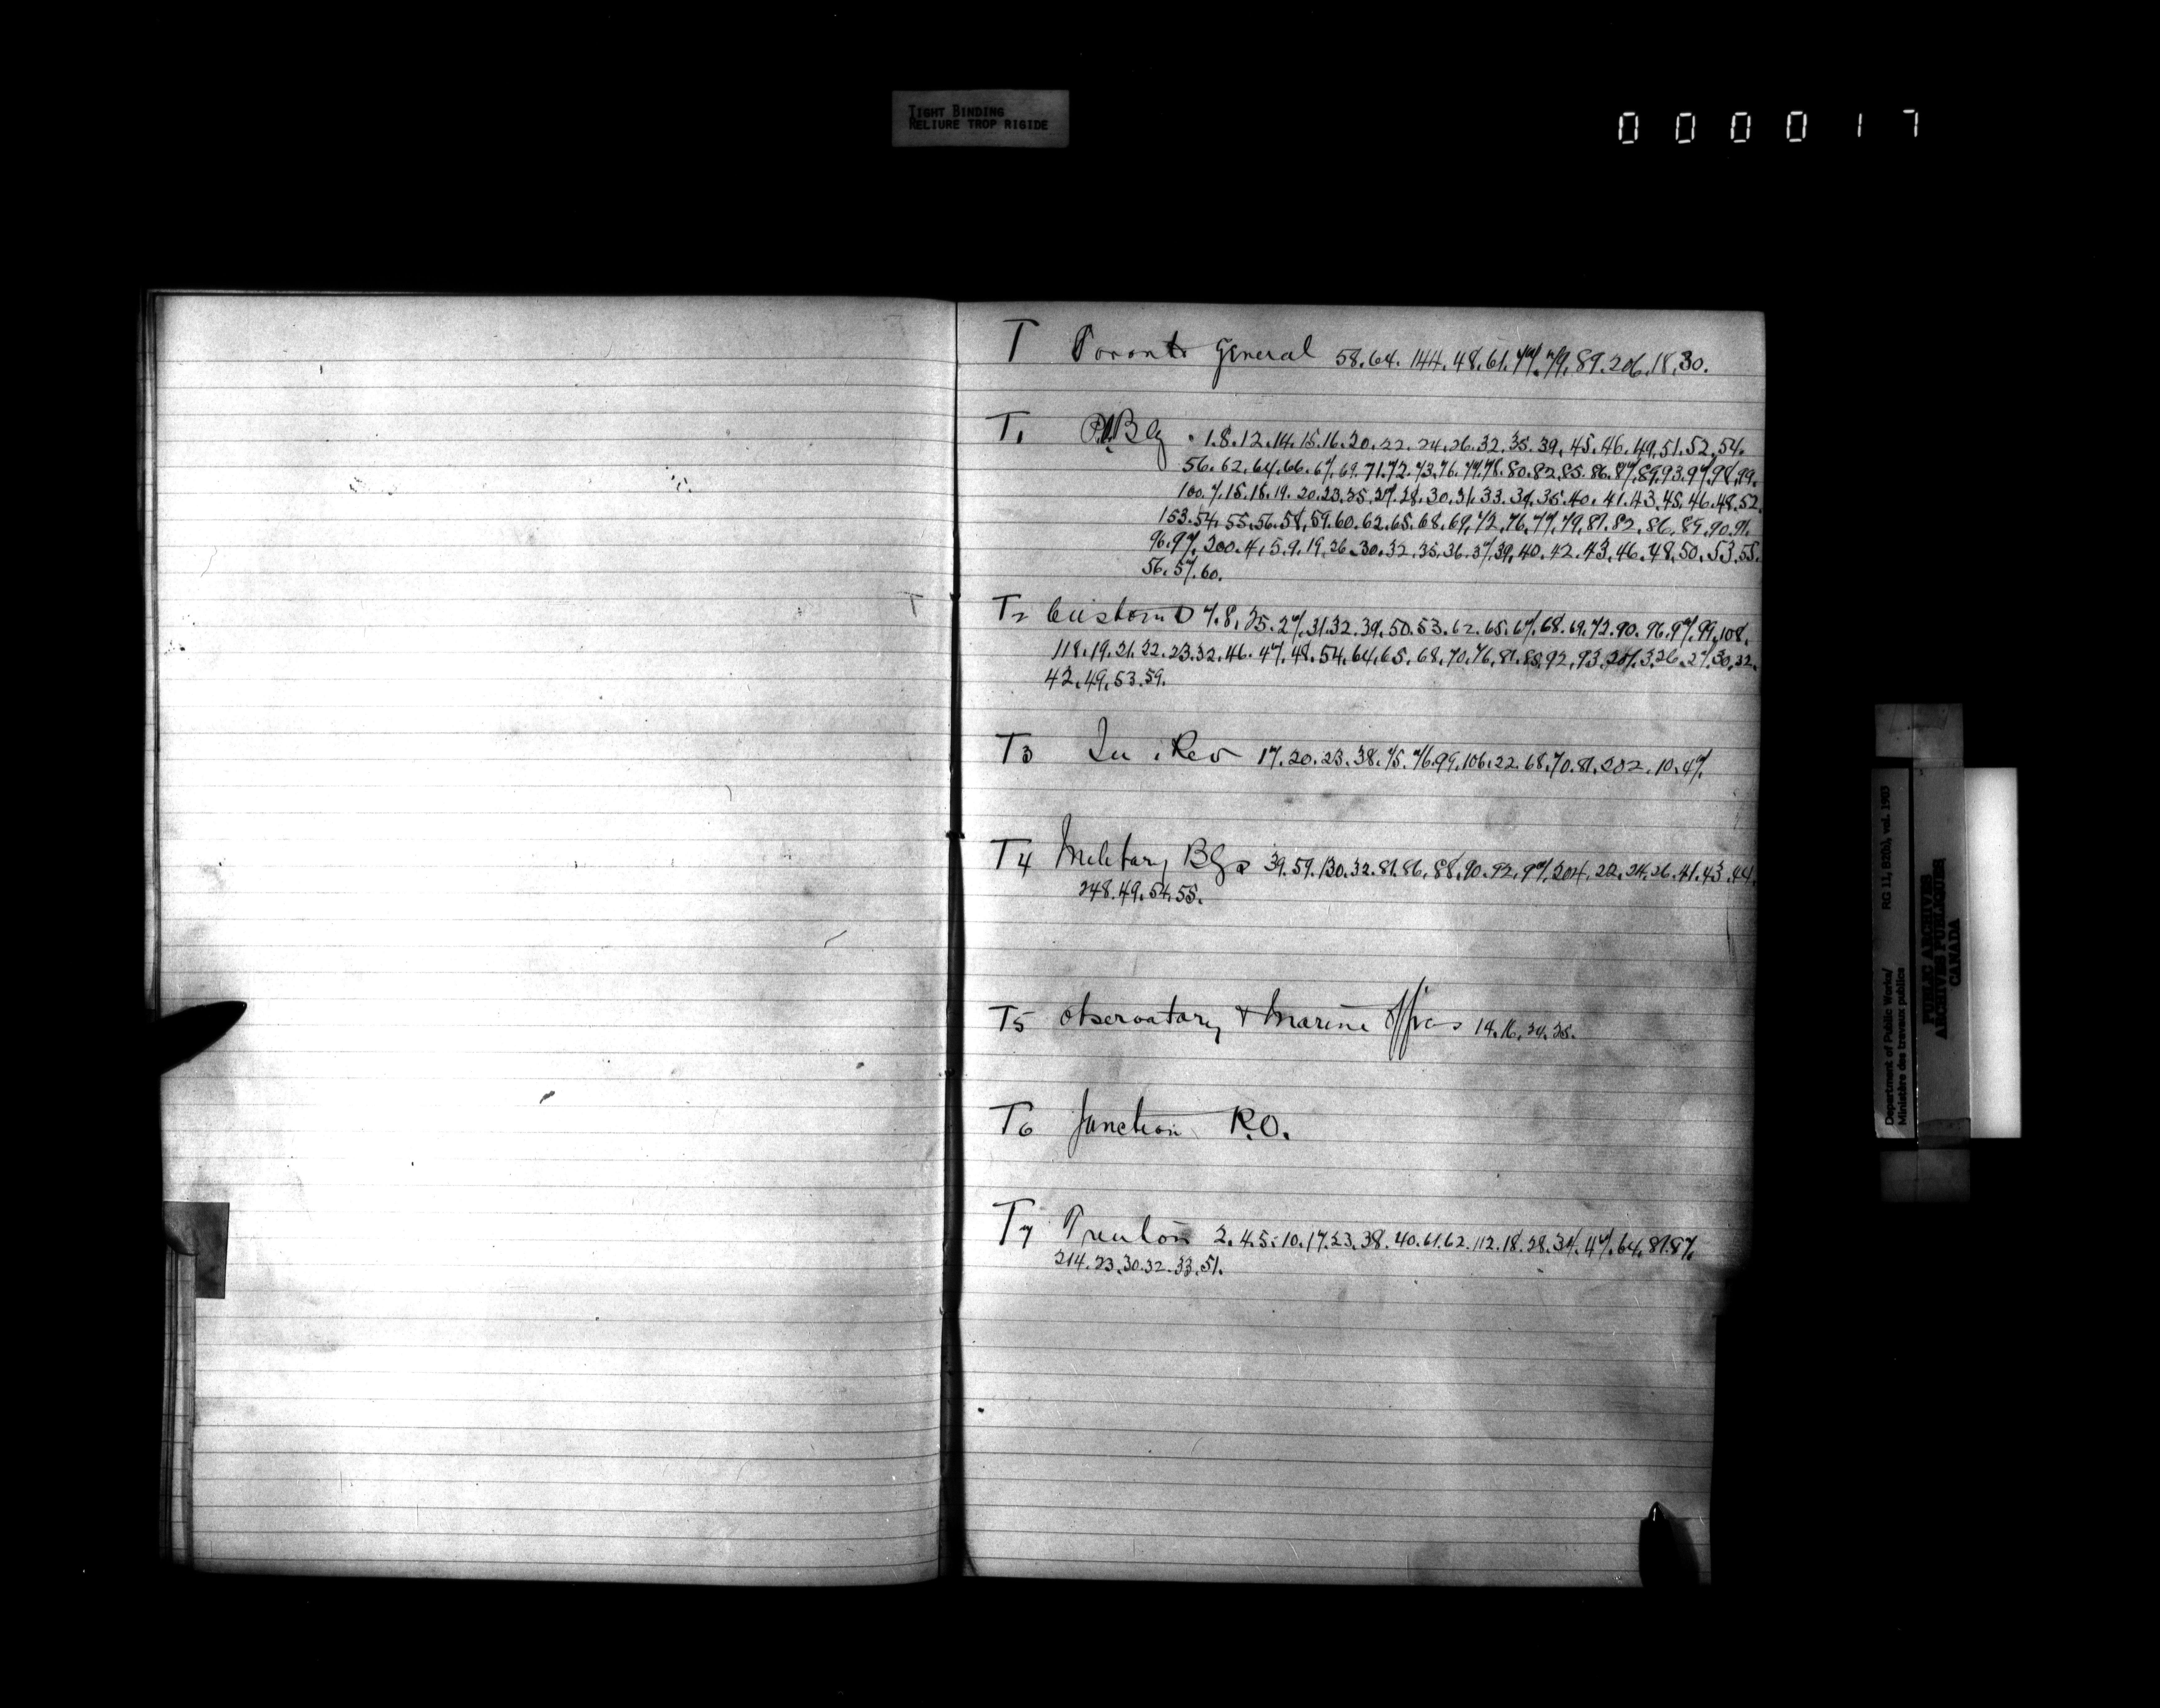 TIGHT BINDING
RELIURE TROP RIGIDE
000017
T Toronto General 58.64.144.48.61.77.79.89.206.18.30.
T1 P.Bg. 1.8.12.14.15.16.20.22.24.26.32.35.39.45.46.49.51.52.54.
56.62.64.66.67.69.71.72.73.76.77.78.80.82.85.86.87.89.93.97.98.99.
100.7.15.18.19.20.23.25.27.28.30.31.33.34.35.40.41.43.45.46.48.52.
153.54.55.56.58.59.60.62.65.68.69.72.76.77.79.81.82.86.89.90.91.
96.97.200.4.5.9.19.26.30.32.35.36.37.39.40.42.43.46.48.50.53.55.
56.57.60.
T2 Customs 7.8.25.27.31.32.39.50.53.62.65.67.68.69.72.90.96.97.99.108.
118.19.21.22.23.32.46.47.48.54.64.65.68.70.76.81.88.92.93.3.26.27.30.32.
42.49.53.59.
T3 In. Rev 17.20.23.38.75.76.99.106.22.68.70.81.202.10.47.
T4 Military Bgs 39.59.130.32.81.86.88.90.92.97.204.22.24.26.41.43.44.
248.49.54.55.
T5 Observatory & Marine Offices 14.16.34.38.
T6 Junction P.O.
T7 Trenton 2.4.5.10.17.23.38.40.61.62.112.18.28.34.47.64.81.87.
214.23.30.32.33.51.
Department of Public Works/ RG 11, B2(b), vol. 1903
Ministère des travaux publics
PUBLIC ARCHIVES
ARCHIVES PUBLIQUES
CANADA